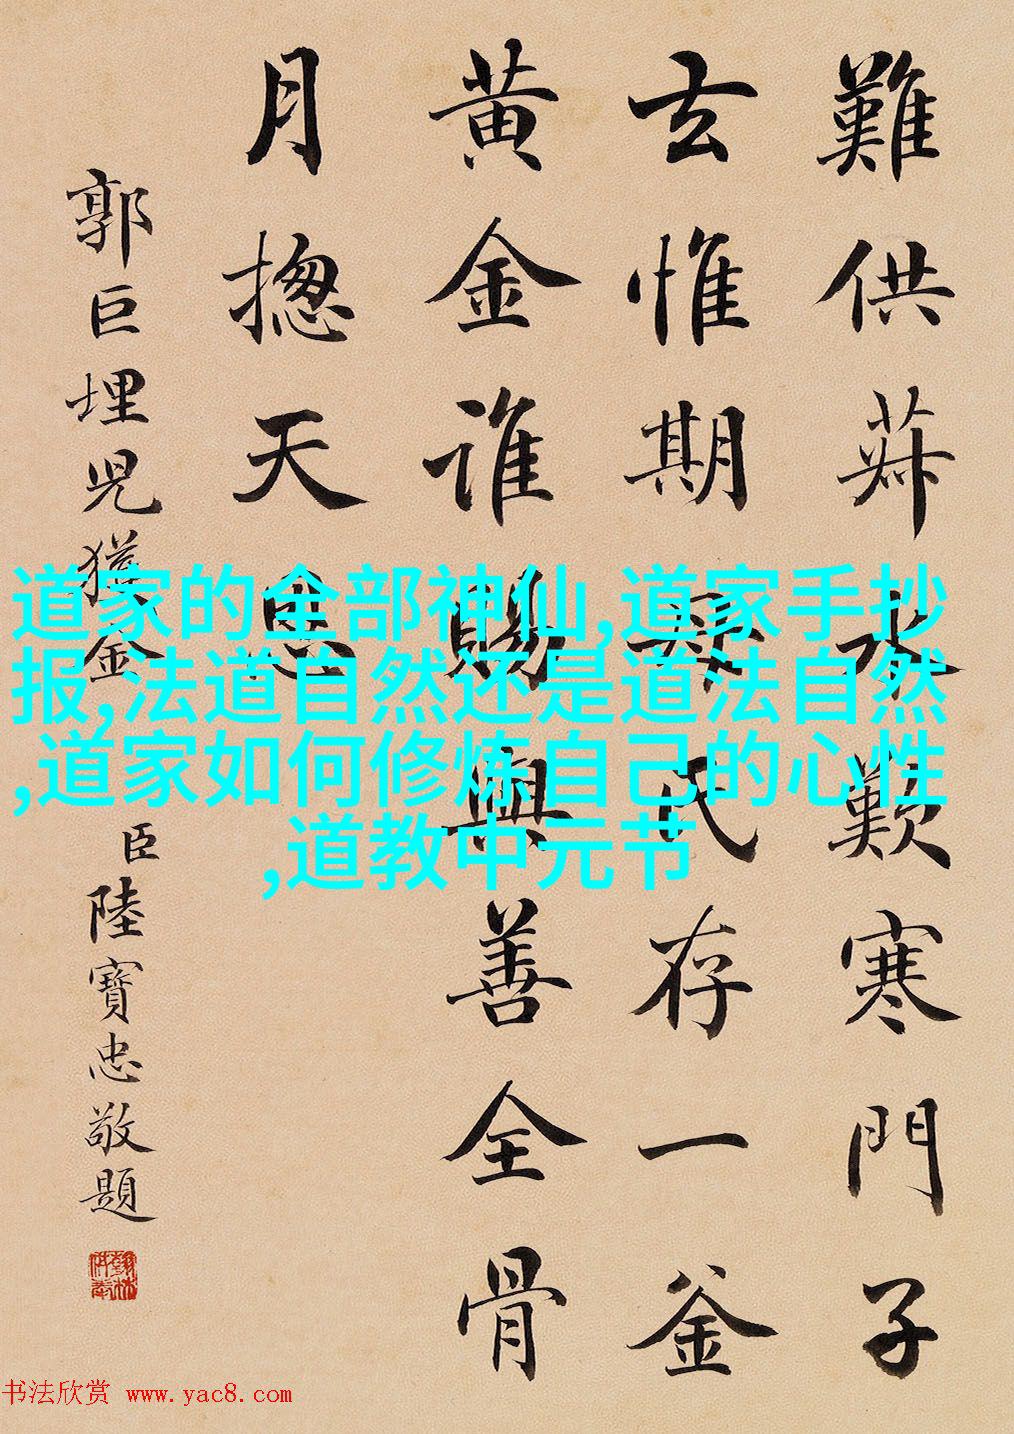 難供菽水歎寒門子
去惟期母氏存一釜
黄金誰賜與善全骨
月揔天恩
郭巨埋兒獲金
臣陸寶忠敬題
翰林供奉
道家的全部神仙,道家手抄
报,法道自然还是道法自然
,道家如何修炼自己的心性
,道教中元节
书法欣赏 www.yac8.com